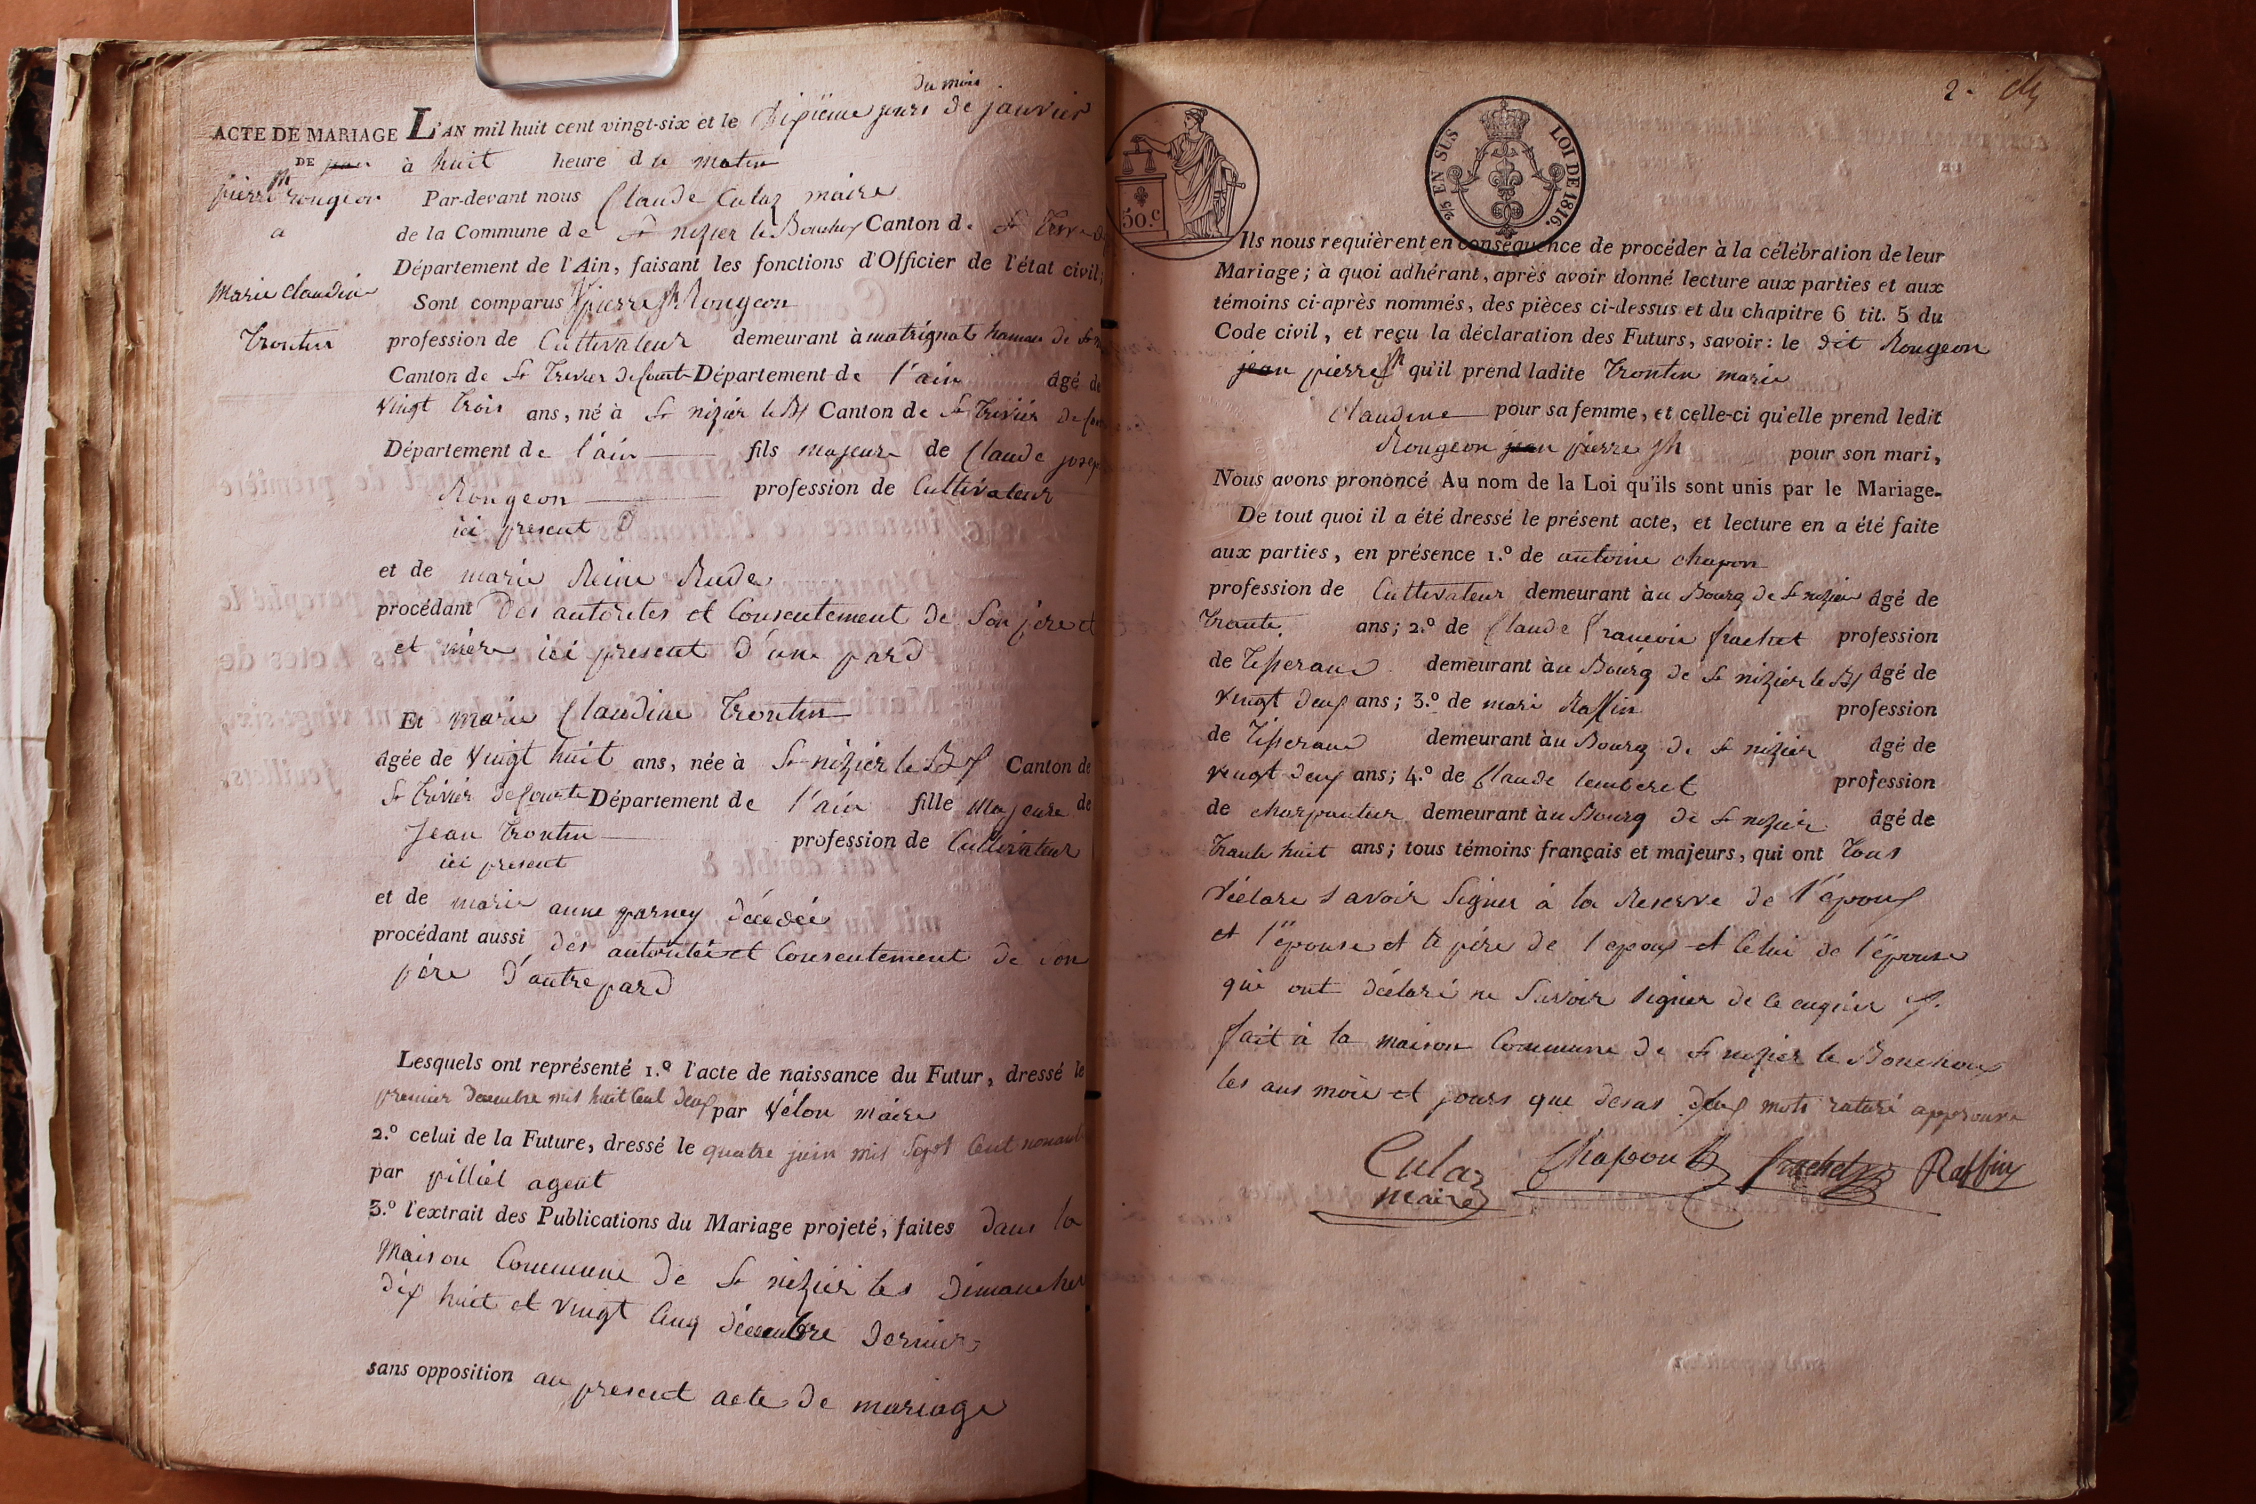 du mois
ACTE DE MARIAGE L'AN mil huit cent vingt-six et le Dixiéme jours de janvier
DE jean à huit heure du matin
pierre jh rougeon Par-devant nous Claude Culaz maire
a de la Commune de St nizier le Bouchoux Canton de St Trivier
Département de l'Ain, faisant les fonctions d'Officier de l'état civil;
Marie Claudine Sont comparus pierre jh Rougeon
Trontin profession de Cultivateur demeurant à matrignat hameau de St
Canton de St Trivier de Courte Département de l'ain âgé de
vingt trois ans, né à St nizier le Bx Canton de St Trivier de Courte
Département de l'ain fils majeure de Claude joseph
Rougeon profession de Cultivateur
ici present
et de marie Reine Rude
procédant des autorites et Consentement de Son pere et
et mère ici present d'une pard
Et marie Claudine Trontin
âgée de vingt huit ans, née à St nizier le Bx Canton de
St Trivier de Courte Département de l'ain fille majeure de
Jean Trontin profession de Cultivateur
ici present
et de marie anne parney décédée
procédant aussi des autorités et Consentement de Son
père d'autre pard
Lesquels ont représenté 1.º l'acte de naissance du Futur, dressé le
premier Decembre mil huit Cent deux par Vélon maire
2.º celui de la Future, dressé le quatre juin mil Sept Cent nonante
par pilliet agent
3.º l'extrait des Publications du Mariage projeté, faites dans la
Maison Commune de St nizier les dimanches
dix huit et vingt Cinq décembre dernier
sans opposition au present acte de mariage
2.
5/2 EN SUS LOI DE 1816.
50.c
Ils nous requièrent en conséquence de procéder à la célébration de leur
Mariage; à quoi adhérant, après avoir donné lecture aux parties et aux
témoins ci-après nommés, des pièces ci-dessus et du chapitre 6 tit. 5 du
Code civil, et reçu la déclaration des Futurs, savoir: le dit Rougeon
jean pierre jh qu'il prend ladite Trontin marie
Claudine pour sa femme, et celle-ci qu'elle prend ledit
Rougeon jean pierre jh pour son mari,
Nous avons prononcé Au nom de la Loi qu'ils sont unis par le Mariage.
De tout quoi il a été dressé le présent acte, et lecture en a été faite
aux parties, en présence 1.º de antoine chapon
profession de Cultivateur demeurant à u Bourg de St nizier âgé de
Trante ans; 2.º de Claude francoi frachet profession
de Tisserand demeurant à u Bourg de St nizier le Bx âgé de
vingt deux ans; 3.º de mari Raffin profession
de Tisserand demeurant à u Bourg de St nizier âgé de
vingt deux ans; 4.º de Claude lemberet profession
de charpantier demeurant à u Bourg de St nizier âgé de
Trante huit ans; tous témoins français et majeurs, qui ont Tous
déclare savoir Signer à la Reserve de l'époux
et l'épouse et le père de l'epoux et Celui de l'épouse
qui ont déclaré ne Savoir signer de ce enquis
fait à la maison Commune de St nizier le Bouchoux
les ans mois et jours que desus deux mots raturé approuvé
Culaz Chapon frachet Raffin
maire